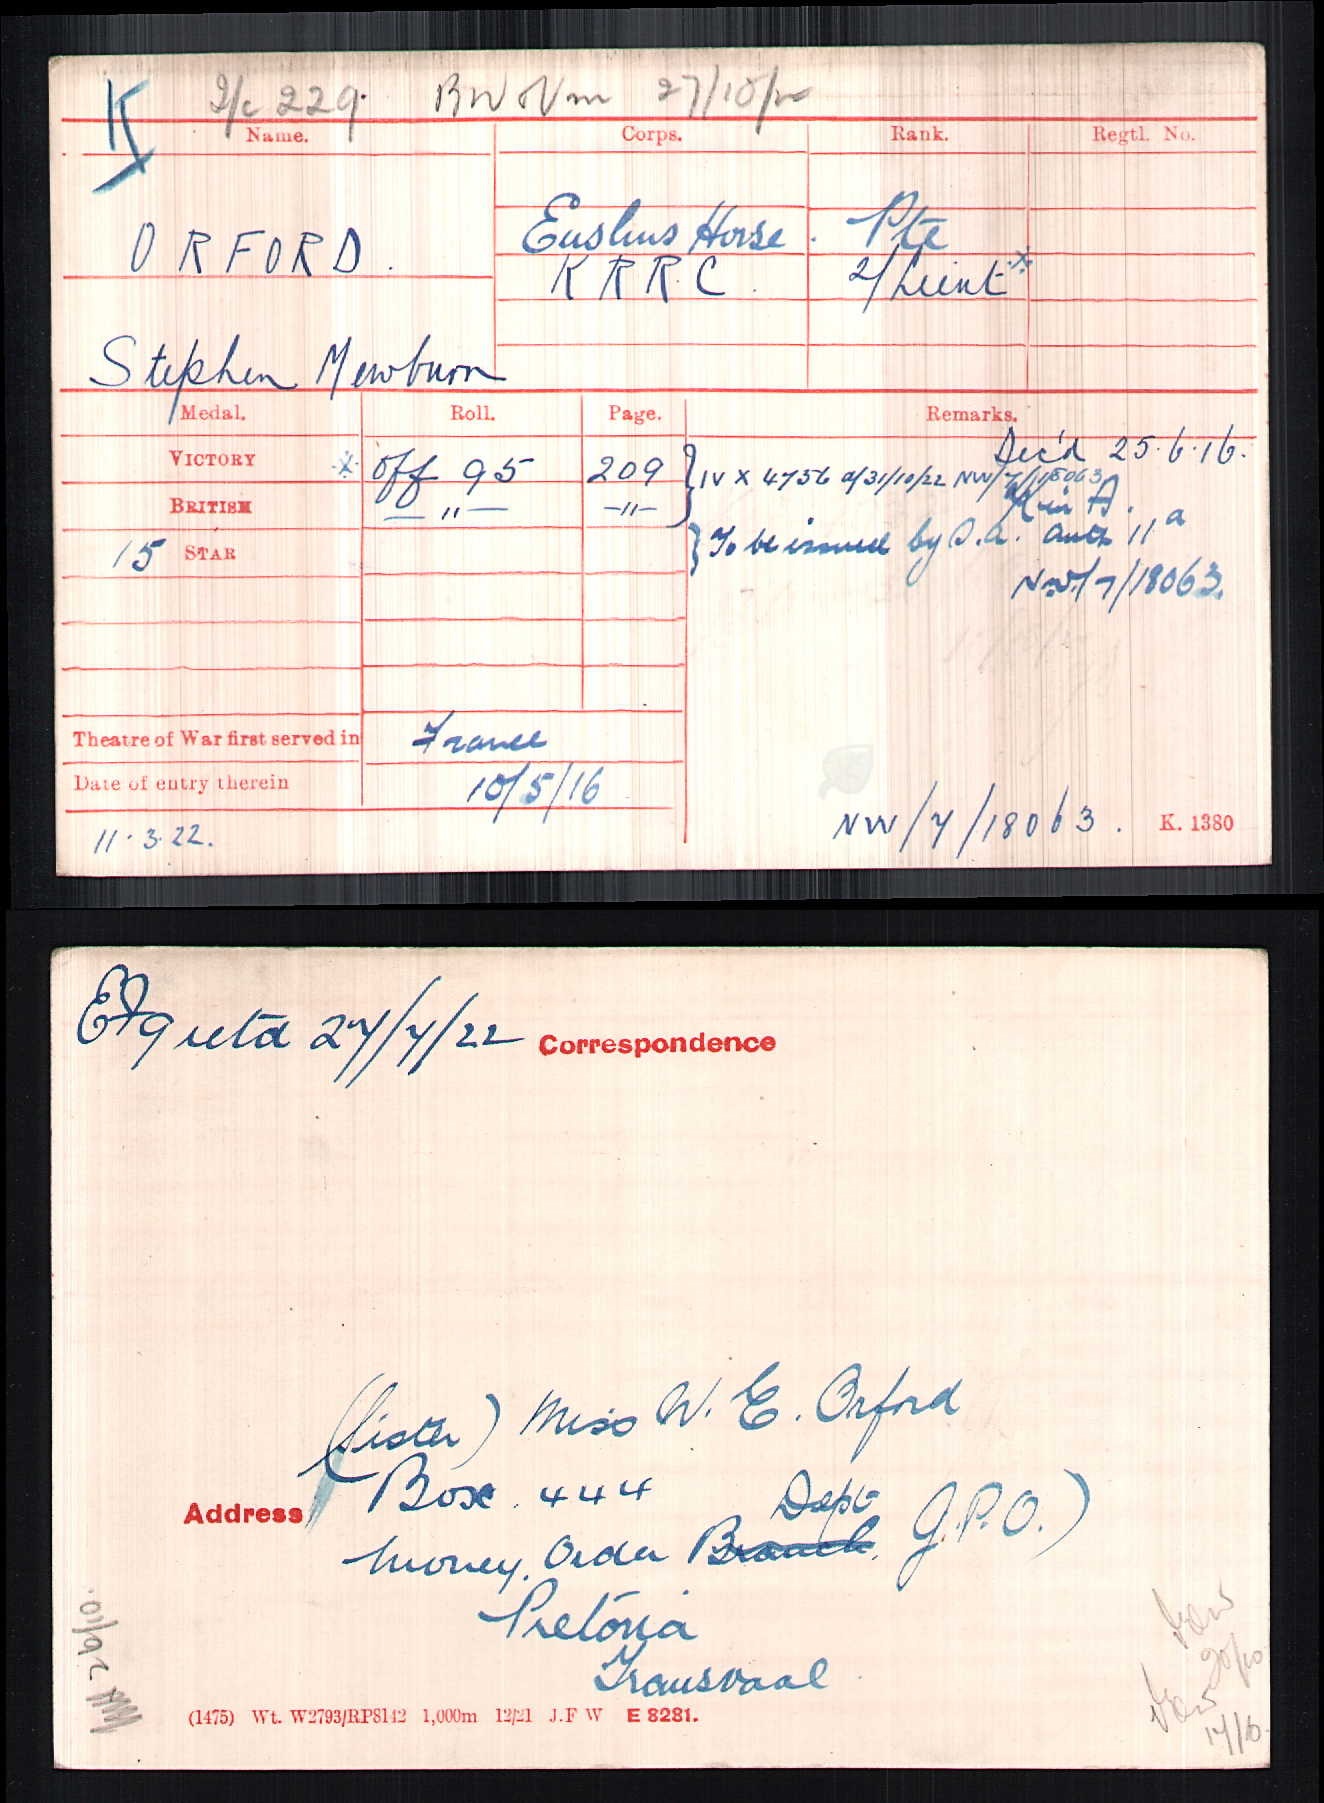 K I/c 229. BW & Vm 27/10/22
Name. Corps. Rank. Regtl. No.
ORFORD. Enslins Horse. Pte
K R R C. 2/Lieut x
Stephen Mewburn
Medal. Roll. Page. Remarks.
Dec'd 25.6.16.
VICTORY x Off 95 209 } IV X 4756 d/31/10/22 NW/7/18063
BRITISH — " — — " — K in A.
15 STAR } To be issued by S.A. auth 11a
NW/7/18063.
Theatre of War first served in France
Date of entry therein 10/5/16
11.3.22. NW/7/18063. K. 1380
EF9 retd 27/7/22 Correspondence
(Sister) Miss W. E. Orford
Address Box 444
Money Order Branch Dept G.P.O.)
Pretoria
Transvaal
(1475) Wt. W2793/RP8142 1,000m 12/21 J.F W E 8281.
26/10.
20/10
17/10.